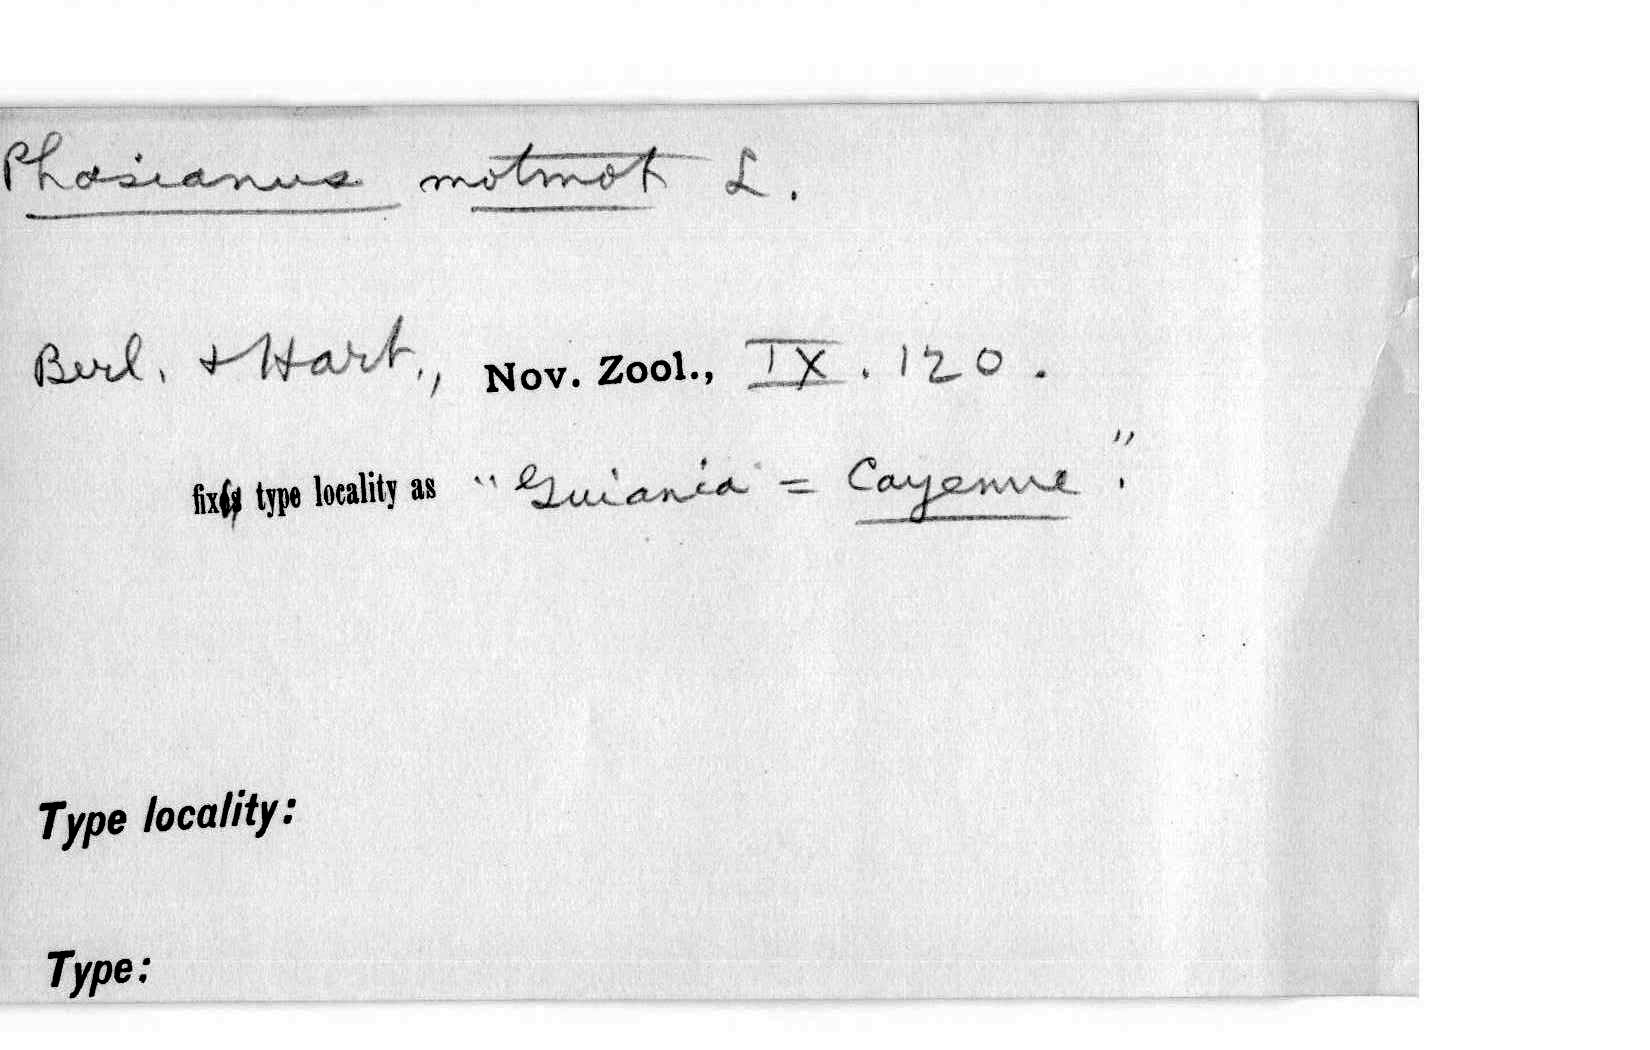 Phasianus motmot L.
Berl. & Hart., Nov. Zool., IX. 120.
fix type locality as "Guiania = Cayenne".
Type locality:
Type: